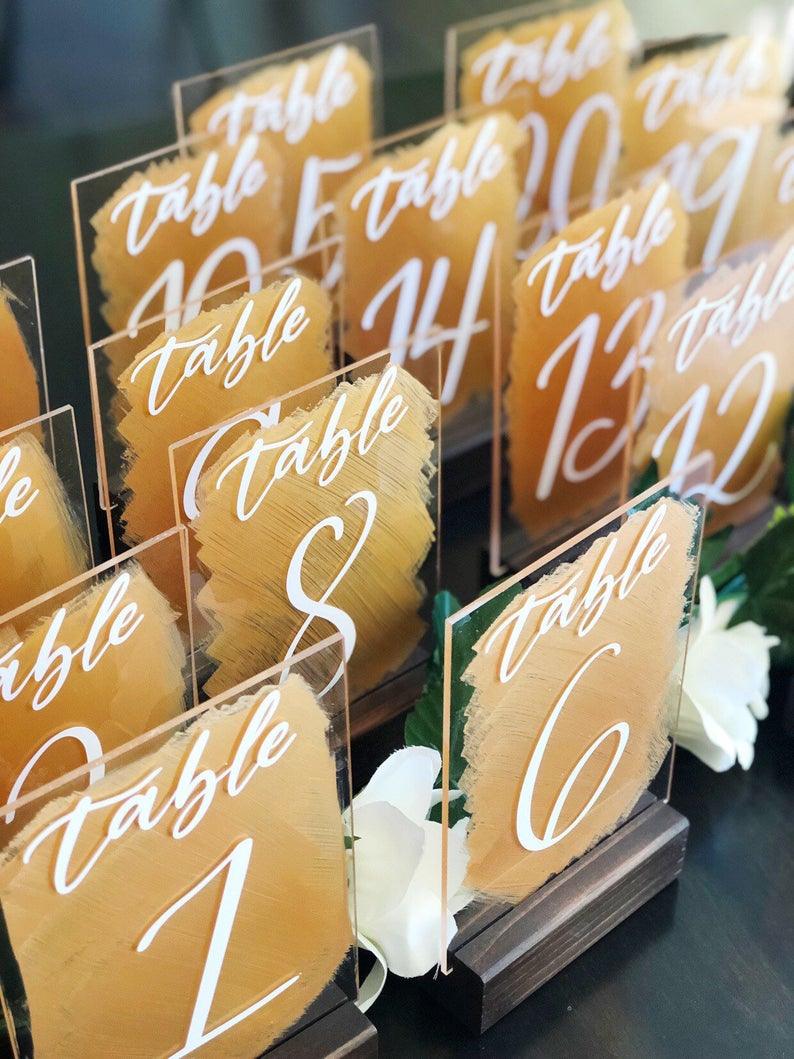 table
15
table
20
table
19
table
10
table
14
table
13
table
12
table
table
8
table
6
le
table
2
table
1